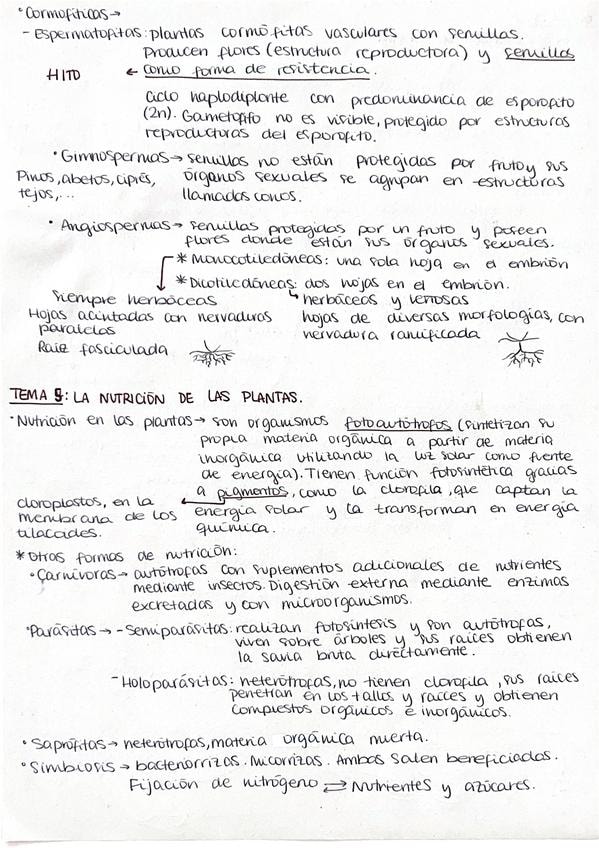 • Cormofíticas →
- Espermatofitas: plantas cormofitas vasculares con semillas.
Producen flores (estructura reproductora) y semillas
HITO ← como forma de resistencia.
Ciclo haplodiplonte con predominancia de esporofito
(2n). Gametofito no es visible, protegido por estructuras
reproductoras del esporofito.
• Gimnospermas → semillas no están protegidas por fruto y sus
Pinos, abetos, ciprés, órganos sexuales se agrupan en estructuras
tejos,... llamadas conos.
• Angiospermas → semillas protegidas por un fruto y poseen
flores donde están sus órganos sexuales.
* Monocotiledóneas: una sola hoja en el embrión
* Dicotiledóneas: dos hojas en el embrión.
Siempre herbáceas
Hojas acintadas con nervaduras
paralelas
Raíz fasciculada
herbáceas y leñosas
hojas de diversas morfologías, con
nervadura ramificada
TEMA 9: LA NUTRICIÓN DE LAS PLANTAS.
• Nutrición en las plantas → son organismos fotoautótrofos (sintetizan su
propia materia orgánica a partir de materia
inorgánica utilizando la luz solar como fuente
de energía). Tienen función fotosintética gracias
a pigmentos, como la clorofila, que captan la
energía solar y la transforman en energía
química.
cloroplastos, en la
membrana de los
tilacoides.
* Otras formas de nutrición:
• Carnívoras → autótrofas con suplementos adicionales de nutrientes
mediante insectos. Digestión externa mediante enzimas
excretadas y con microorganismos.
• Parásitas → - Semiparásitas: realizan fotosíntesis y son autótrofas,
viven sobre árboles y sus raíces obtienen
la savia bruta directamente.
- Holoparásitas: heterótrofas, no tienen clorofila, sus raíces
penetran en los tallos y raíces y obtienen
compuestos orgánicos e inorgánicos.
• Saprófitas → heterótrofas, materia orgánica muerta.
• Simbiosis → bacteriorrizas. Micorrizas. Ambos salen beneficiados.
Fijación de nitrógeno ⇄ Nutrientes y azúcares.